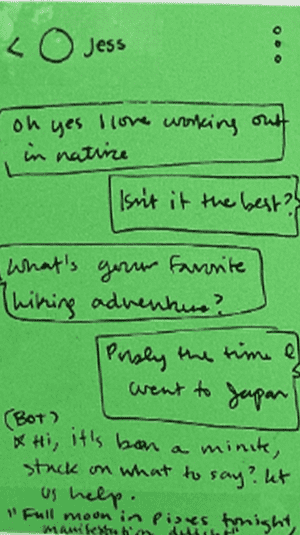 < Jess
Oh yes I love working out
in nature
Isn't it the best?
What's your favorite
hiking adventure?
the time I
went to Japan
(Bot)
Hi, it's been a minute,
stuck on what to say? let
us help.
"Full moon in Pisces tonight,